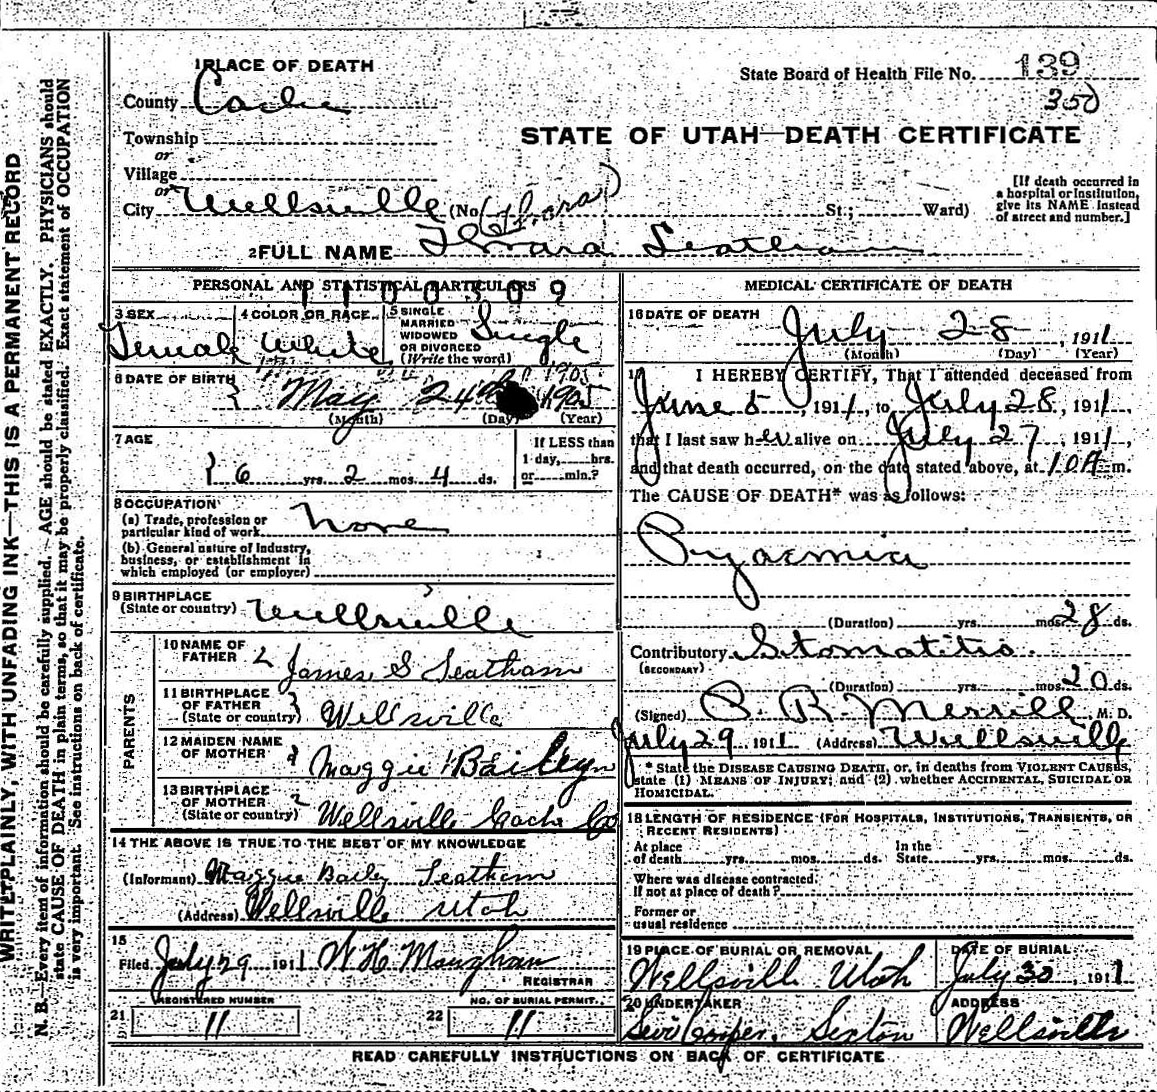 1 PLACE OF DEATH
State Board of Health File No. 139
350
County Cache
STATE OF UTAH—DEATH CERTIFICATE
Township
or
Village
or
City Wellsville (No. St.; Ward)
[If death occurred in
a hospital or institution,
give its NAME instead
of street and number.]
2 FULL NAME Leatham
PERSONAL AND STATISTICAL PARTICULARS
1100309
3 SEX Female
4 COLOR OR RACE White
5 SINGLE
MARRIED
WIDOWED
OR DIVORCED
(Write the word) Single
6 DATE OF BIRTH
1905
May 24th 1905
(Month) (Day) (Year)
7 AGE
6 yrs. 2 mos. 4 ds.
If LESS than
1 day, hrs.
or min.?
8 OCCUPATION
(a) Trade, profession or
particular kind of work None
(b) General nature of industry,
business, or establishment in
which employed (or employer)
9 BIRTHPLACE
(State or country) Wellsville
PARENTS
10 NAME OF
FATHER James S Leatham
11 BIRTHPLACE
OF FATHER
(State or country) Wellsville
12 MAIDEN NAME
OF MOTHER Maggie Bailey
13 BIRTHPLACE
OF MOTHER
(State or country) Wellsville Cache Co
14 THE ABOVE IS TRUE TO THE BEST OF MY KNOWLEDGE
(Informant) Maggie Baily Leatham
(Address) Wellsville Utah
15
Filed July 29 1911 W H Maughan
REGISTRAR
REGISTERED NUMBER
21 11
NO. OF BURIAL PERMIT
22 11
MEDICAL CERTIFICATE OF DEATH
16 DATE OF DEATH
July 28, 1911
(Month) (Day) (Year)
17 I HEREBY CERTIFY, That I attended deceased from
June 5, 1911, to July 28, 1911,
that I last saw her alive on July 27, 1911,
and that death occurred, on the date stated above, at 10 A m.
The CAUSE OF DEATH* was as follows:
Pyaemia
(Duration) yrs. mos. 28 ds.
Contributory Stomatitis
(SECONDARY)
(Duration) yrs. mos. 20 ds.
(Signed) P. R. Merrill M. D.
July 29 1911 (Address) Wellsville
* State the DISEASE CAUSING DEATH, or, in deaths from VIOLENT CAUSES,
state (1) MEANS OF INJURY; and (2) whether ACCIDENTAL, SUICIDAL OR
HOMICIDAL.
18 LENGTH OF RESIDENCE (FOR HOSPITALS, INSTITUTIONS, TRANSIENTS, OR
RECENT RESIDENTS)
At place
of death yrs. mos. ds.
In the
State yrs. mos. ds.
Where was disease contracted.
if not at place of death?
Former or
usual residence
19 PLACE OF BURIAL OR REMOVAL
Wellsville Utah
DATE OF BURIAL
July 30, 1911
20 UNDERTAKER
Cooper, Sexton
ADDRESS
Wellsville
READ CAREFULLY INSTRUCTIONS ON BACK OF CERTIFICATE
WRITE PLAINLY, WITH UNFADING INK—THIS IS A PERMANENT RECORD
N. B.—Every item of information should be carefully supplied. AGE should be stated EXACTLY. PHYSICIANS should
state CAUSE OF DEATH in plain terms, so that it may be properly classified. Exact statement of OCCUPATION
is very important. See instructions on back of certificate.